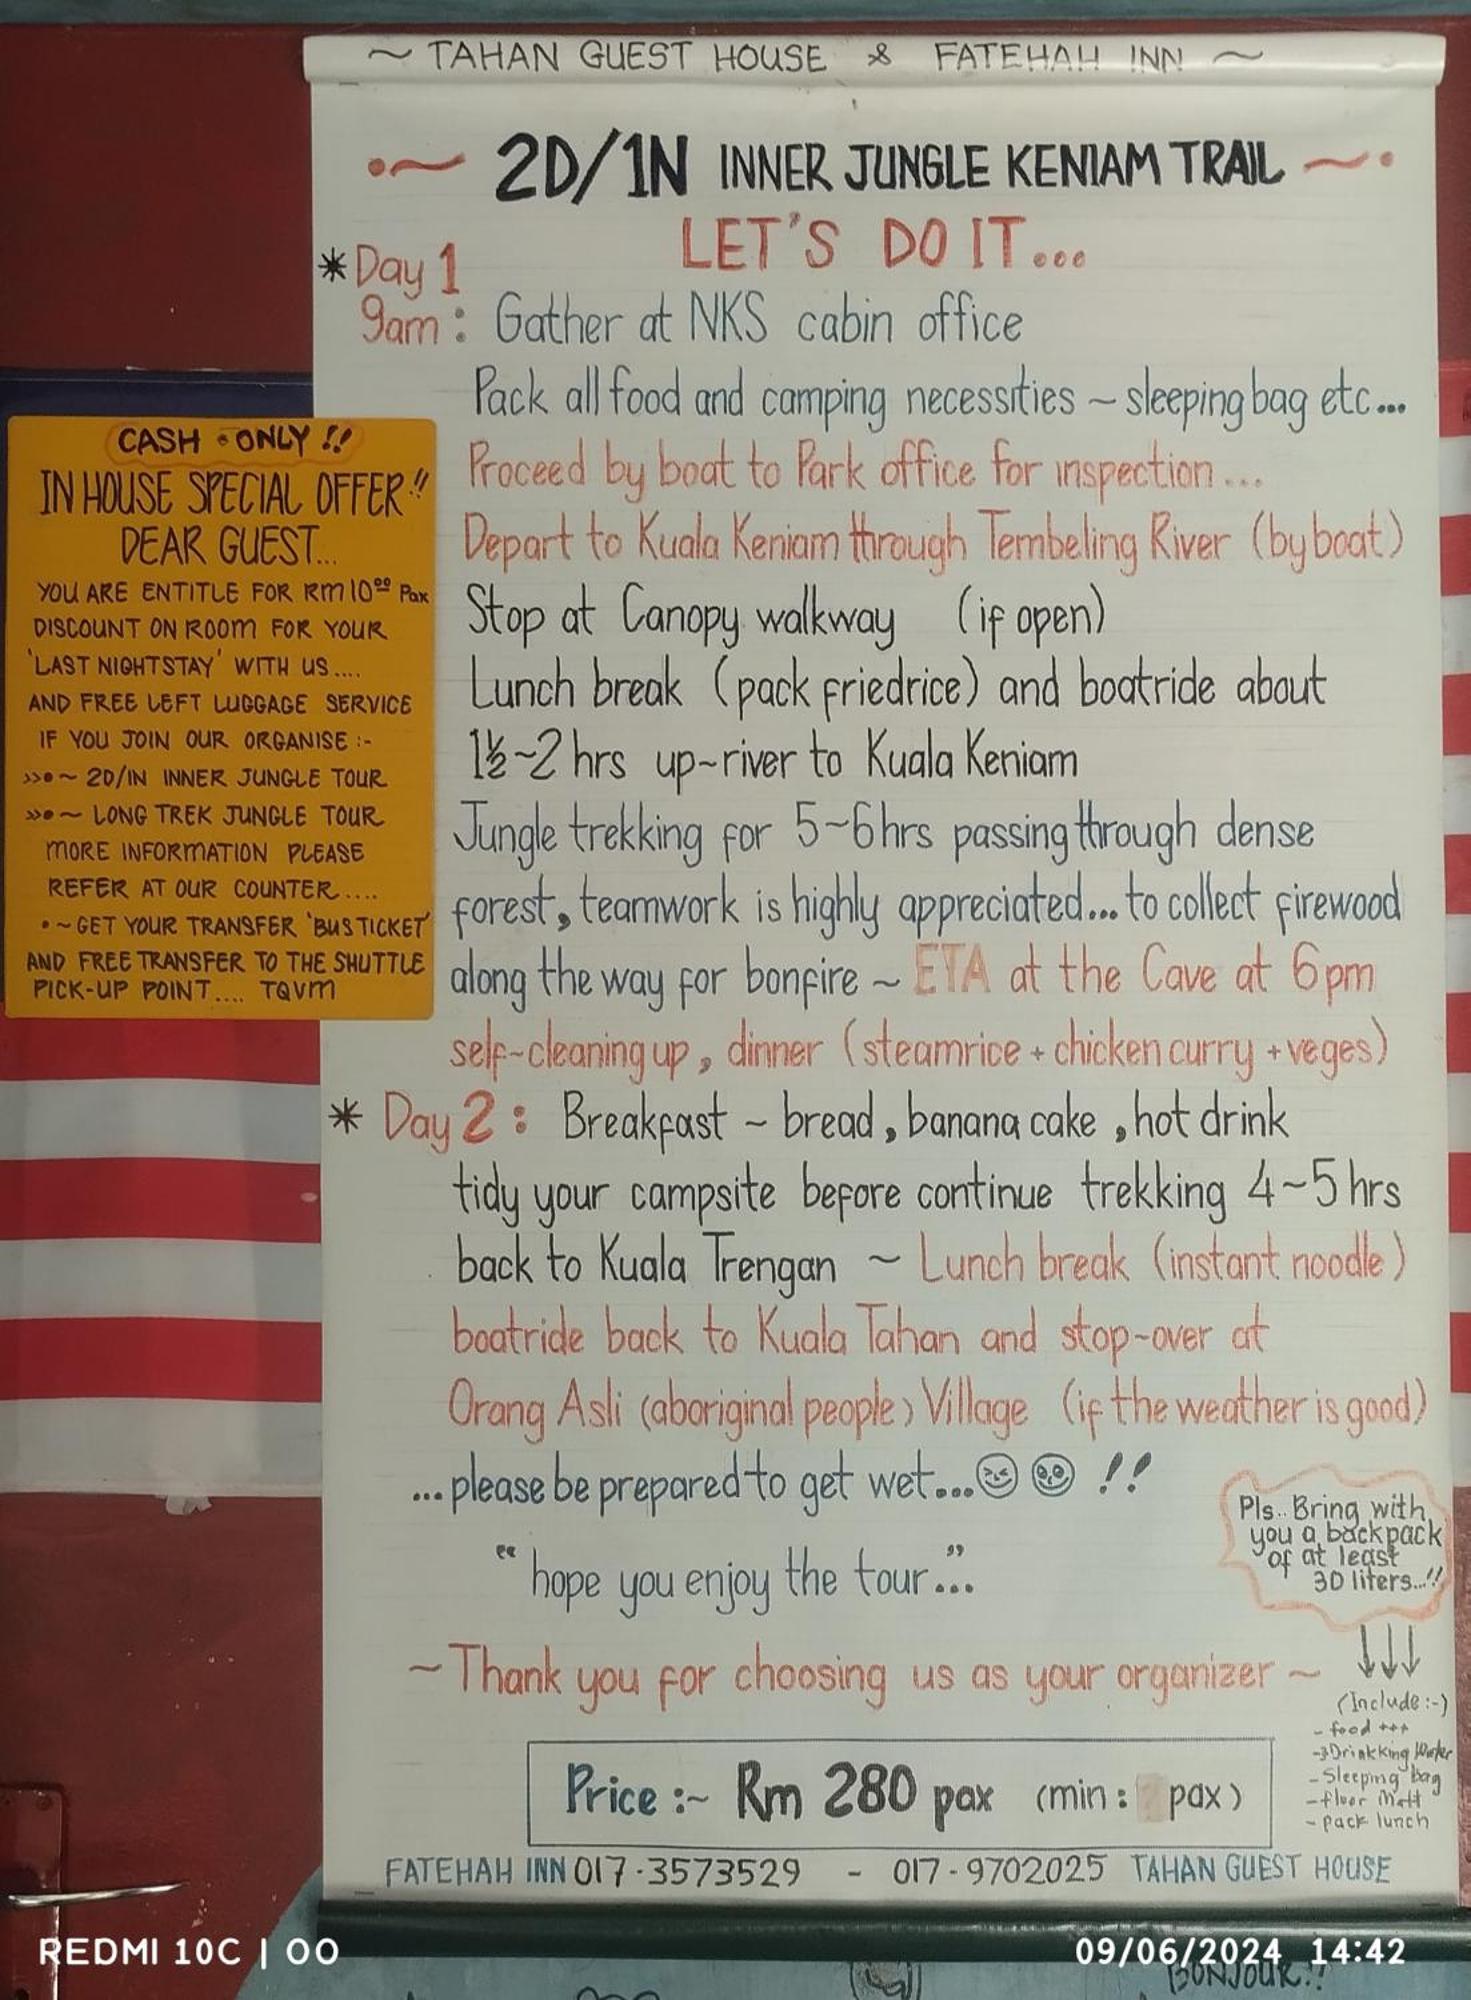 ~ TAHAN GUEST HOUSE & FATEHAH INN ~
2D/1N INNER JUNGLE KENIAM TRAIL
LET'S DO IT...
* Day 1
9am : Gather at NKS cabin office
Pack all food and camping necessities ~ sleeping bag etc...
Proceed by boat to Park office for inspection...
Depart to Kuala Keniam through Tembeling River (by boat)
Stop at Canopy walkway (if open)
Lunch break (pack friedrice) and boatride about
1½~2 hrs up~river to Kuala Keniam
Jungle trekking for 5~6hrs passing through dense
forest, teamwork is highly appreciated... to collect firewood
along the way for bonfire ~ ETA at the Cave at 6pm
self~cleaning up, dinner (steamrice + chicken curry + veges)
* Day 2 : Breakfast ~ bread, banana cake, hot drink
tidy your campsite before continue trekking 4~5 hrs
back to Kuala Trengan ~ Lunch break (instant noodle)
boatride back to Kuala Tahan and stop~over at
Orang Asli (aboriginal people) Village (if the weather is good)
...please be prepared to get wet... !!
"hope you enjoy the tour"...
~ Thank you for choosing us as your organizer ~
Price :~ Rm 280 pax (min : pax)
FATEHAH INN 017-3573529 - 017-9702025 TAHAN GUEST HOUSE
CASH • ONLY !!
IN HOUSE SPECIAL OFFER!!
DEAR GUEST...
YOU ARE ENTITLE FOR RM 10⁰⁰ Pax
DISCOUNT ON ROOM FOR YOUR
'LAST NIGHT STAY' WITH US....
AND FREE LEFT LUGGAGE SERVICE
IF YOU JOIN OUR ORGANISE :-
>>•~ 2D/1N INNER JUNGLE TOUR
>>•~ LONG TREK JUNGLE TOUR
MORE INFORMATION PLEASE
REFER AT OUR COUNTER....
•~ GET YOUR TRANSFER 'BUS TICKET'
AND FREE TRANSFER TO THE SHUTTLE
PICK-UP POINT.... TQVM
Pls.. Bring with
you a backpack
of at least
30 liters...!!
(Include :-)
- food +++
- Drinkking Water
- Sleeping bag
- floor matt
- pack lunch
BONJOUR..!!
REDMI 10C | OO
09/06/2024 14:42